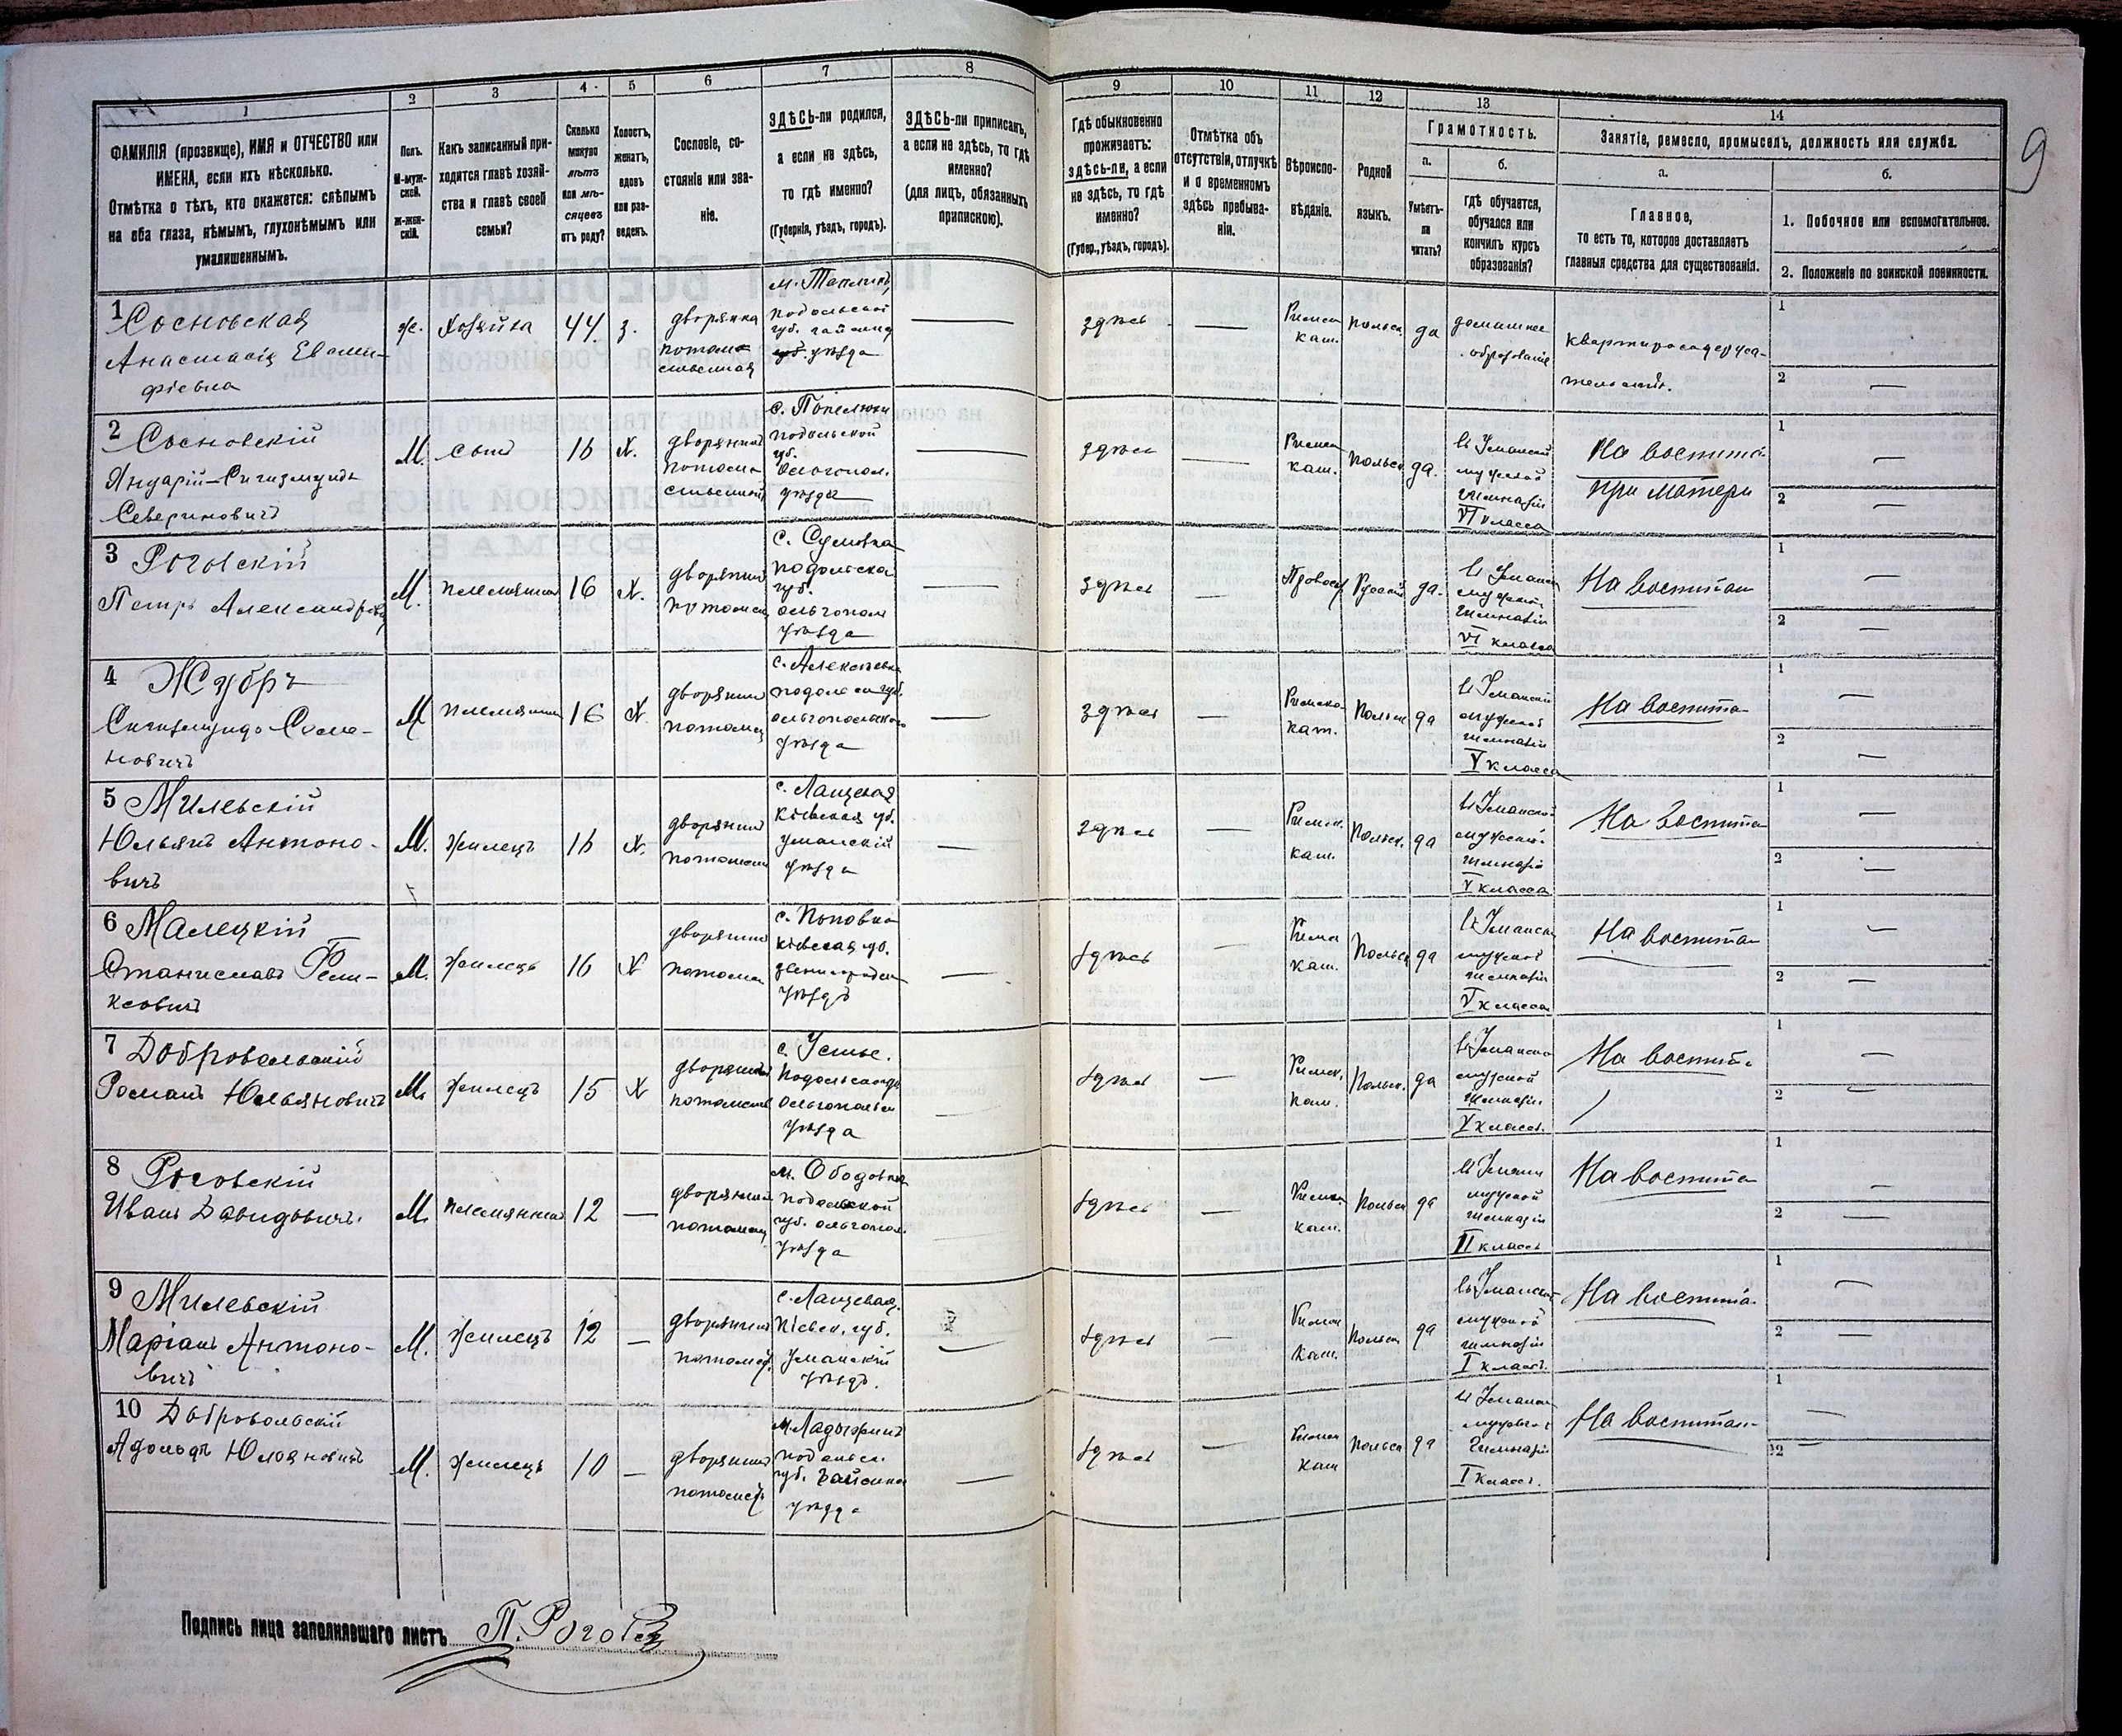 1
2
3
4
5
6
7
8
9
10
11
12
13
14
ФАМИЛІЯ (прозвище), ИМЯ и ОТЧЕСТВО или
ИМЕНА, если ихъ нѣсколько.
Отмѣтка о тѣхъ, кто окажется: слѣпымъ
на оба глаза, нѣмымъ, глухонѣмымъ или
умалишеннымъ.
Полъ.
М-муж-
ской.
Ж-жен-
скій.
Какъ записанный при-
ходится главѣ хозяй-
ства и главѣ своей
семьи?
Сколько
минуло
лѣтъ
или мѣ-
сяцевъ
отъ роду?
Холостъ,
женатъ,
вдовъ
или раз-
веденъ.
Сословіе, со-
стояніе или зва-
ніе.
ЗДѢСЬ-ли родился,
а если не здѣсь,
то гдѣ именно?
(Губернія, уѣздъ, городъ).
ЗДѢСЬ-ли приписанъ,
а если не здѣсь, то гдѣ
именно?
(для лицъ, обязанныхъ
припискою).
Гдѣ обыкновенно
проживаетъ:
здѣсь-ли, а если
не здѣсь, то гдѣ
именно?
(Губер., уѣздъ, городъ).
Отмѣтка объ
отсутствіи, отлучкѣ
и о временномъ
здѣсь пребыва-
ніи.
Вѣроиспо-
вѣданіе.
Родной
языкъ.
Грамотность.
а.
б.
Умѣетъ-
ли
читать?
гдѣ обучается,
обучался или
кончилъ курсъ
образованія?
Занятіе, ремесло, промыселъ, должность или служба.
а.
б.
Главное,
то есть то, которое доставляетъ
главныя средства для существованія.
1. Побочное или вспомогательное.
2. Положеніе по воинской повинности.
9
1 Сосновская
Анастасія Евстафіевна
ж.
Хозяйка
44.
з.
дворянка
потомственная
подольской
губ.
уѣзда
здѣсь
Римск
кат.
польск.
да
домашнее
образованіе
квартиросодержа-
1
2
2 Сосновскій
Януарій-Сигизмундъ
Севериновичъ
М.
сынъ
16
Х.
дворянинъ
с. Попелюхи
подольской
губ.
ольгопол.
уѣзда
здѣсь
Римск
кат.
польск
да.
въ Уманской
мужской
гимназіи
VI класса
На воспита
при матери
1
2
3 Роговскій
Петръ Александров
М.
племянникъ
16
Х.
дворянинъ
потомств
с. Сумовка
подольска
губ.
ольгопол
уѣзда
здѣсь
Правосл
Русскій
да.
въ Уманск
мужской
гимназіи
VI класса
На воспитан
1
2
4 Жубръ
Сигизмундъ
М
племянник
16
Х.
дворянин
потомств
с. Алексѣевка
подольск губ.
ольгопольского
уѣзда
здѣсь
Римско
кат.
Польск
да
въ Уманской
мужской
гимназіи
V класса
На воспита
1
2
5 Милевскій
Юльянъ Антоно-
вичъ
М.
Жилецъ
16
Х.
дворянин
потомств
с. Лащевая
Кіевская губ.
уманскій
уѣзда
здѣсь
Римск.
кат.
Польск.
да
въ Уманской
мужской
гимназіи
V класса
На воспита
1
2
6 Малецкій
Станиславъ Фели-
ксовичъ
М.
Жилецъ
16
Х
дворянин
потомств
с. Поповка
кіевская губ.
уѣздъ
здѣсь
Римск
кат.
Польск
да
въ Уманск
мужской
гимназіи
V класса
На воспита
1
2
7 Добровольскій
Романъ Юльяновичъ
М.
Жилецъ
15
Х
дворянинъ
потомств
с. Устье.
Подольск губ
ольгопольск
уѣзда
здѣсь
Римск.
кат.
Польск.
да
въ Уманской
мужской
гимназіи
V класс.
На воспит.
1
2
8 Роговскій
Иванъ Давидовичъ.
М.
племянник
12
дворянин
потомств
м. Ободовка
подольской
губ. ольгопол.
уѣзда
здѣсь
Римск
кат.
Польск
да
въ Уман
мужской
гимназіи
II класс
На воспита
1
2
9 Милевскій
Маріанъ Антоно-
вичъ
М.
Жилецъ
12
дворянин
потомств.
с. Лащевая.
Кіевск. губ.
Уманскій
уѣздъ.
здѣсь
Римск
кат.
Польск
да
въ Уманской
мужской
гимназіи
I класс.
На воспита
1
2
10 Добровольскій
Адольфъ Юльяновичъ
М.
Жилецъ
10
дворянин
потомств
м. Ладыжинъ
подольск.
губ. Гайсинск
уѣзда
здѣсь
Римск
кат
Польск
да
въ Уманск
мужской
гимназіи
I класс.
На воспитан
1
2
Подпись лица заполнявшаго листъ П. Рогов